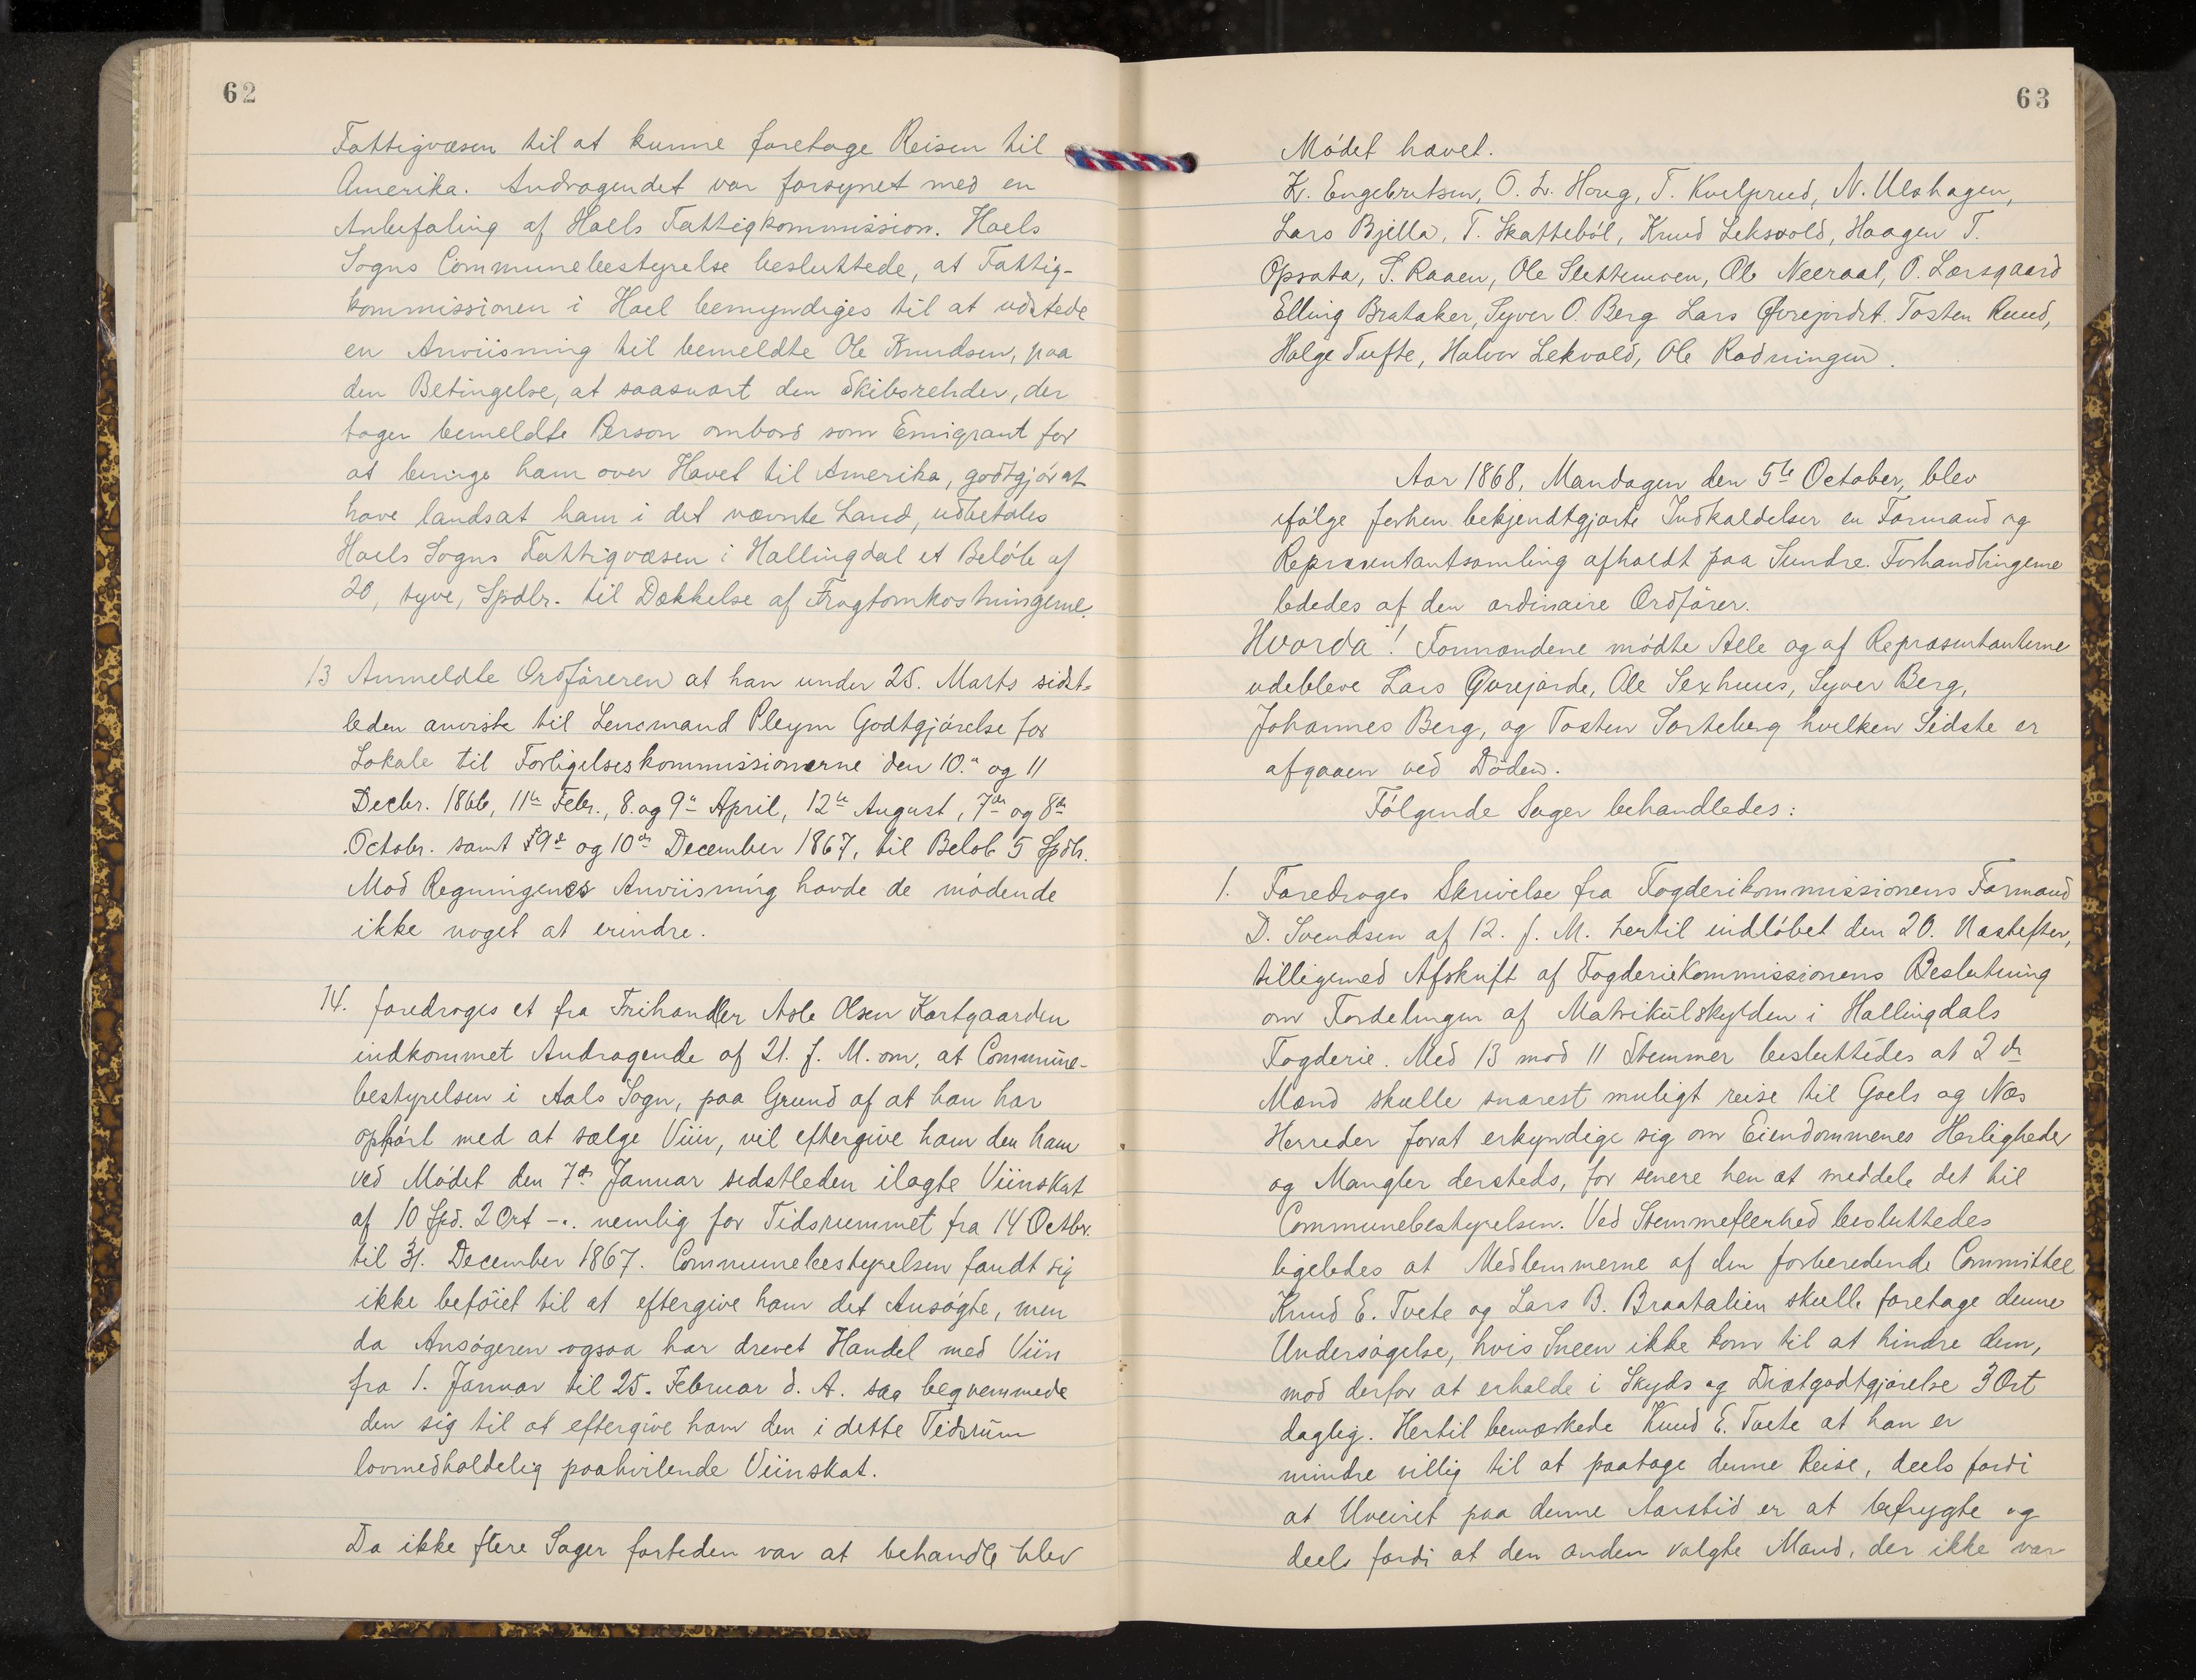 62
Fattigvæsen til at kunne foretage Reisen til
Amerika. Andragendet var forsynet med en
Anbefaling af Hoels Fattigkommission. Hoels
Sogns Communebestyrelse besluttede, at Fattig-
kommissionen i Hoel bemyndiges til at udstede
en Anviisning til bemeldte Ole Knudsen, paa
den Betingelse, at saasnart den Skibsrehder, der
tager bemeldte Person ombord som Emigrant for
at bringe ham over Havet til Amerika, godtgjør at
have landsat ham i det nævnte Land, udbetales
Hoels Sogns Fattigvæsen i Hallingdal et Beløb af
20, tyve, Spdlr. til Dækkelse af Fragtomkostningerne.
13 Anmeldte Ordføreren at han under 25. Marts sidst-
leden anviste til Lensmand Pleym Godtgjørelse for
Lokale til Forligelseskommissionerne den 10." og 11
Decbr. 1866, 11te Febr., 8. og 9" April, 12te August, 7de og 8de
Octobr. samt 9de og 10de December 1867, til Beløb 5 Spdlr.
Mod Regningens Anviisning havde de mødende
ikke noget at erindre.
14. foredroges et fra Frihandler Asle Olsen Kortgaarden
indkommet Andragende af 21. f. M. om, at Commune-
bestyrelsen i Aals Sogn, paa Grund af at han har
ophørt med at sælge Viin, vil eftergive ham den ham
ved Mødet den 7de Januar sidstleden ilagte Viinskat
af 10 Spd. 2 Ort -". nemlig for Tidsrummet fra 14 Octbr.
til 31. December 1867. Communebestyrelsen fandt sig
ikke beføiet til at eftergive ham det Ansøgte, men
da Ansøgeren ogsaa har drevet Handel med Viin
fra 1. Januar til 25. Februar d. A. saa beqvemmede
den sig til at eftergive ham den i dette Tidsrum
lovmedholdelig paahvilende Viinskat.
Da ikke flere Sager forteden var at behandle blev
63
Mødet hævet.
K. Engebretsen, O. L. Houg, T. Kvelprud, N. Ulshagen,
Lars Bjella, T. Skattebøl, Knud Leksvold, Haagen T.
Opsata, S. Raaen, Ole Slettemoen, Ole Neeraal, O. Larsgaard
Elling Brataker, Syver O. Berg Lars Øvrejordet. Tosten Ruud,
Helge Tufte, Halvor Lekvold, Ole Rodningen.
Aar 1868, Mandagen den 5te October, blev
ifølge forhen bekjendtgjorte Indkaldelser en Formand og
Repræsentantsamling afholdt paa Sundre. Forhandlingerne
lededes af den ordinaire Ordfører.
Hvorda! Formændene mødte Alle og af Repræsentanterne
udebleve Lars Øvrejorde, Ole Sexhuus, Syver Berg,
Johannes Berg, og Tosten Sorteberg hvilken Sidste er
afgaaen ved Døden.
Følgende Sager behandledes:
1. Foredroges Skrivelse fra Fogderikommissionens Formand
D. Svendsen af 12. f. M. hertil indløbet den 20. Næstefter,
tilligemed Afskrift af Fogderiekommissionens Beslutning
om Fordelingen af Matrikulskylden i Hallingdals
Fogderie. Med 13 mod 11 Stemmer besluttedes at 2de
Mænd skulle snarest muligt reise til Goels og Næs
Herreder forat erkyndige sig om Eiendommenes Herligheder
og Mangler dersteds, for senere hen at meddele det til
Communebestyrelsen. Ved Stemmeflerhed besluttedes
ligeledes at Medlemmerne af den forberedende Committee
Knud E. Tvete og Lars B. Braatalien skulle foretage denne
Undersøgelse, hvis Sneen ikke kom til at hindre dem,
mod derfor at erholde i Skyds og Diætgodtgjørelse 3 Ort
daglig. Hertil bemærkede Knud E. Tvete at han er
mindre villig til at paatage denne Reise, deels fordi
at Uveiret paa denne Aarstid er at befrygte og
deels fordi at den anden valgte Mand, der ikke var